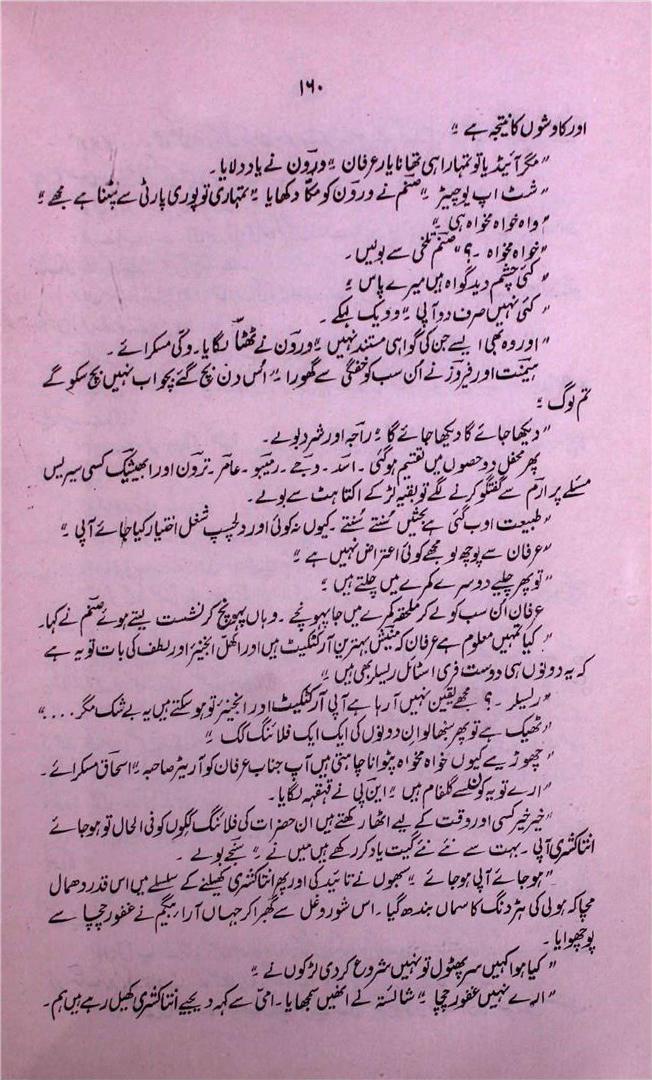 ۱۶۰
اور کاوشوں کا نتیجہ ہے ؛
” مگر آئیڈیا تو تمہارا ہی تھا نا یار عرفان ؛ ورون نے یاد دلایا۔
” شٹ اپ یو چیٹر ؛ صنم نے ورون کو مکّا دکھایا ؛ تمہاری تو پوری پارٹی سے نپٹنا ہے مجھے ؛
” واہ خواہ مخواہ ہی ؛
” خواہ مخواہ ۔؟“ صنم تلخی سے بولیں۔
” کئی چشم دید گواہ ہیں میرے پاس ؛
” کئی نہیں صرف دو آپی ؛ وویک لپکے ۔
” اور وہ بھی ایسے جن کی گواہی مستند نہیں ؛ ورون نے ٹھٹّا لگایا۔ وکّی مسکرائے۔
ہیمنت اور فیروز نے ان سب کو خفگی سے گھورا ؛ اُس دن بچ گئے بچّو اب نہیں بچ سکو گے
تم لوگ ؛
” دیکھا جائے گا دیکھا جائے گا ؛ راجہ اور شرد بولے۔
پھر محفل دو حصوں میں تقسیم ہو گئی ۔ اسد ۔ دجے ۔ رمیبو ۔ عامر ۔ ترون اور ابھیشیک کسی سیریس
مسئلے پر ارم سے گفتگو کرنے لگے تو بقیہ لڑکے اکتاہٹ سے بولے۔
” طبیعت اوب گئی ہے بحثیں سُنتے سُنتے ۔ کیوں نہ کوئی اور دلچسپ شغل اختیار کیا جائے آپی ؛
” عرفان سے پوچھ لو مجھے کوئی اعتراض نہیں ہے ؛
” تو پھر چلیے دوسرے کمرے میں چلتے ہیں ؛
عرفان ان سب کو لے کر ملحقہ کمرے میں جا پہونچے ۔ وہاں پہونچ کر نشست لیتے ہوئے صنم نے کہا۔
” کیا تمہیں معلوم ہے عرفان کہ منیش بہترین آرکٹکیٹ ہیں اور اکھل انجینئر اور لطف کی بات تو یہ ہے
کہ یہ دونوں ہی دوست فری اسٹائل ریسلر بھی ہیں ؛
” ریسلر ۔؟ مجھے یقین نہیں آ رہا ہے آپی آرکٹکیٹ اور انجینئر تو ہو سکتے ہیں یہ بے شک مگر ....“
” ٹھیک ہے تو پھر سنبھالو ان دونوں کی ایک ایک فلائنگ کک ؛
” چھوڑیے کیوں خواہ مخواہ پٹوانا چاہتی ہیں آپ جناب عرفان کو آریٹر صاحبہ ؛ اسحاق مسکرائے۔
” ارے تو یہ کونسے گلفام ہیں ؛ این پی نے قہقہہ لگایا۔
” خیر خیر کسی اور وقت کے لیے اٹھا رکھتے ہیں ان حضرات کی فلائنگ ککوں کو فی الحال تو ہو جائے
انتاکشری آپی ۔ بہت سے نئے نئے گیت یاد کر رکھے ہیں میں نے ؛ سنجے بولے ۔
” ہو جائے آپی ہو جائے ؛ سبھوں نے تائید کی اور پھر انتاکشری کھیلنے کے سلسلے میں اس قدر دھمال
مچا کہ ہولی کی ہڑدنگ کا سماں بندھ گیا ۔ اس شور و غل سے گھبرا کر جہاں آرا ء بیگم نے غفور چچا سے
پوچھوایا ۔
” کیا ہوا کہیں سر پھٹول تو نہیں شروع کر دی لڑکوں نے ؛
” ارے نہیں غفور چچا ؛ شائستہ نے انھیں سمجھایا ۔ امّی سے کہہ دیجیے انتاکشری کھیل رہے ہیں ہم۔